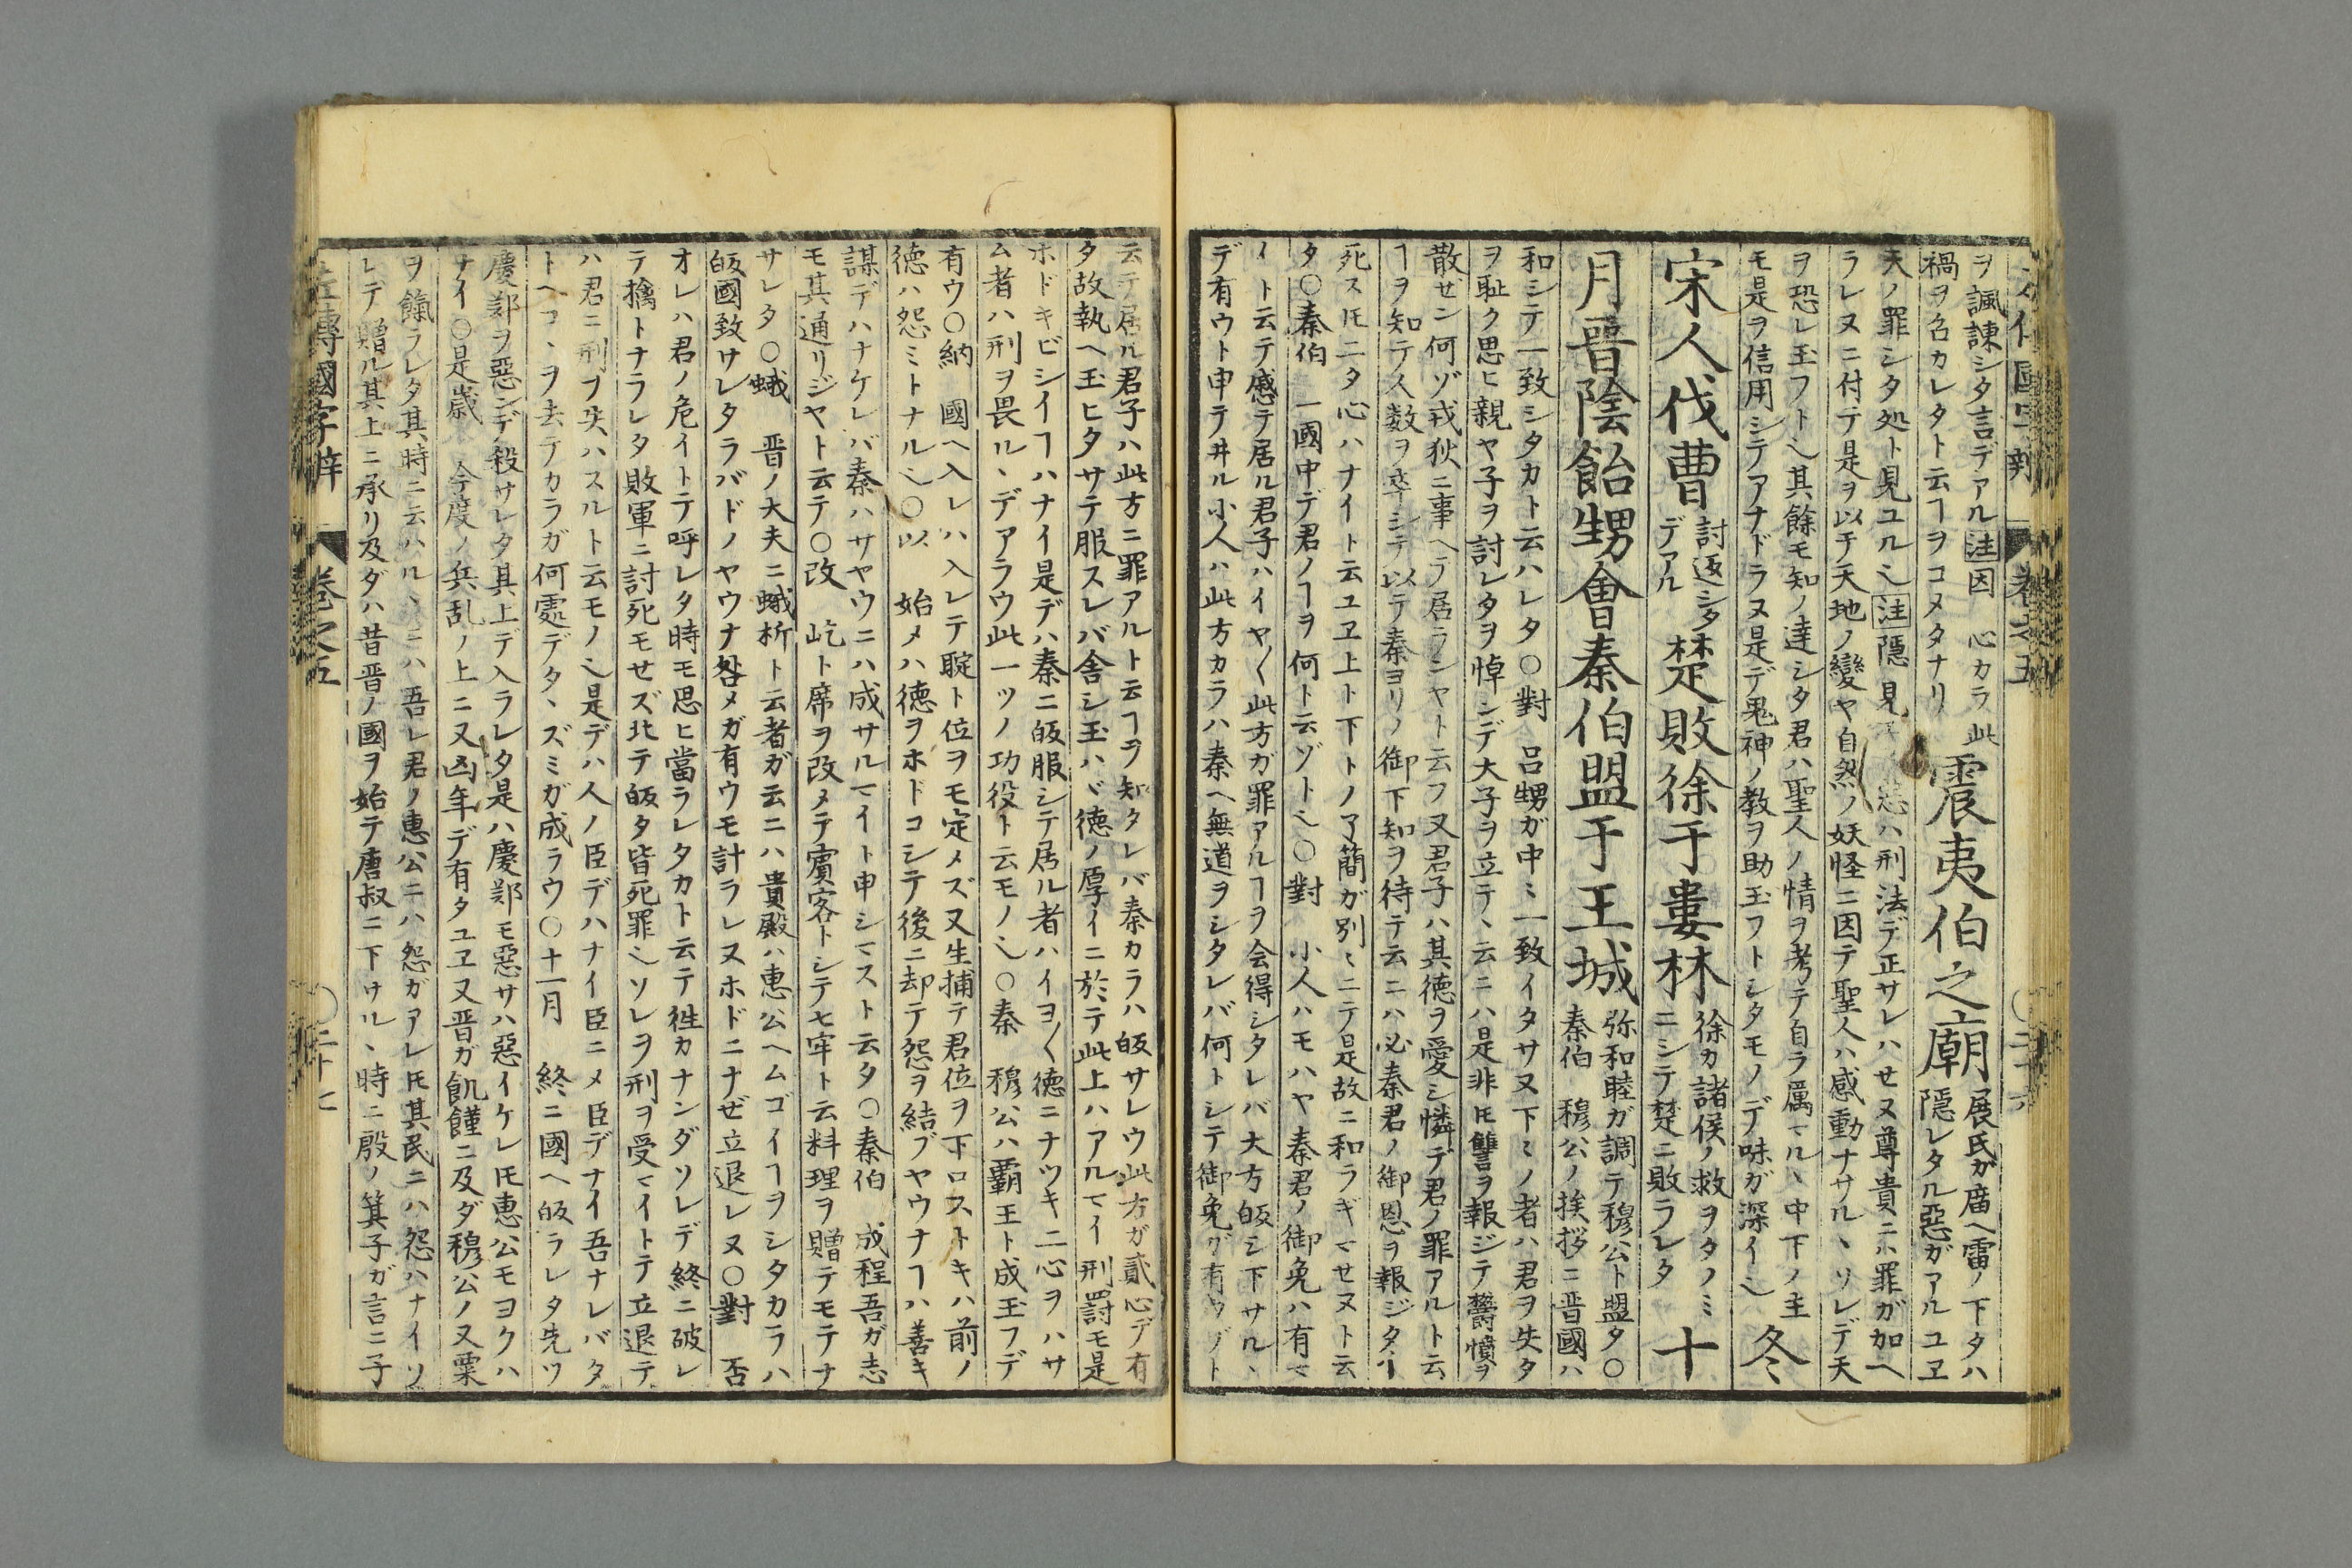 ヲ諷諌シタ言デアル注因　心カラ此
禍ヲ名カレタト云ヿヲコメタナリ
震夷伯之廟
展氏ガ廟ヘ雷ノ下タハ
隠レタル惡ガアルユヱ
天ノ罪シタ処ト見ユル也注隠見
ハ刑法デ正サレハせヌ尊貴ニハ罪ガ加ヘ
ラレヌニ付テ是ヲ以テ天地ノ變ヤ自然ノ妖怪ニ因テ聖人ハ感動ナサルヽソレデ天
ヲ恐レ玉フト也其餘モ知ノ達シタ君ハ聖人ノ情ヲ考テ自ラ厲マルヽ中下ノ主
モ是ヲ信用シテアナドラヌ是デ鬼神ノ教ヲ助玉フトシタモノデ味ガ深イ也
冬
宋人伐曹
討返シタ
デアル
楚敗徐于婁林
徐カ諸侯ノ救ヲタノミ
ニシテ楚ニ敗ラレタ
十
月晉陰飴甥會秦伯盟于王城
弥和睦ガ調テ穆公ト盟タ○
秦伯　穆公ノ挨拶ニ晋國ハ
和シテ一致シタカト云ハレタ○對　呂甥ガ中ミ一致イタサヌ下ミノ者ハ君ヲ失タ
ヲ耻ク思ヒ親ヤ子ヲ討レタヲ悼ンデ大子ヲ立テヽ云ニハ是非トモ讐ヲ報ジテ欝憤ヲ
散ぜン何ゾ戎狄ニ事ヘテ居ラシヤト云フ又君子ハ其徳ヲ愛シ憐デ君ノ罪アルト云
ヿヲ知テ人数ヲ率シテ以テ秦ヨリノ御下知ヲ待テ云ニハ必秦君ノ御恩ヲ報ジタイ
死ストモニタ心ハナイト云ユヱ上ト下トノ了簡ガ別ミニテ是故ニ和ラギマせヌト云
タ○秦伯　一國中デ君ノヿヲ何ト云ゾト也○對　小人ハモハヤ秦君ノ御免ハ有マ
イト云テ慼テ居ル君子ハイヤ〱此方ガ罪アルヿヲ会得シタレバ大方皈シ下サルヽ
デ有ウト申テ井ル小人ハ此方カラハ秦ヘ無道ヲシタレバ何トシテ御免ガ有ウゾト
云テ居ル君子ハ此方ニ罪アルト云ヿヲ知タレバ秦カラハ皈サレウ此方ガ貳心デ有
タ故執ヘ玉ヒタサテ服スレバ舎シ玉ハヾ徳ノ厚イニ於テ此上ハアルマイ刑罰モ是
ホドキビシイヿハナイ是デハ秦ニ皈服シテ居ル者ハイヨ〱徳ニナツキ二心ヲハサ
ム者ハ刑ヲ畏ルヽデアラウ此一ツノ功役ト云モノ也○秦　穆公ハ覇王ト成玉フデ
有ウ○納　國ヘ入レハ入レテ聢ト位ヲモ定メズ又生捕テ君位ヲ下ロストキハ前ノ
徳ハ怨ミトナル也○以　始メハ徳ヲホドコシテ後ニ却テ怨ヲ結ブヤウナヿハ善キ
謀デハナケレバ秦ハサヤウニハ成サルマイト申シマスト云タ○秦伯　成程吾ガ志
モ其通リジヤト云テ○改　屹ト席ヲ改メテ賓客トシテ七牢ト云料理ヲ贈テモテナ
サレタ○蛾　晋ノ大夫ニ蛾析ト云者ガ云ニハ貴殿ハ惠公ヘムゴイヿヲシタカラハ
皈國致サレタラバドノヤウナ咎メガ有ウモ計ラレヌホドニナぜ立退レヌ○對　否
オレハ君ノ危イトテ呼レタ時モ思ヒ當ラレタカト云テ徃カナンダソレデ終ニ破レ
テ擒トナラレタ敗軍ニ討死モせズ北テ皈タ皆死罪也ソレヲ刑ヲ受マイトテ立退テ
ハ君ニ刑ヲ失ハスルト云モノ也是デハ人ノ臣デハナイ臣ニメ臣デナイ吾ナレバタ
トヘコヽヲ去テカラガ何處デタヽズミガ成ラウ○十一月　終ニ國ヘ皈ラレタ先ツ
慶鄭ヲ惡ンデ殺サレタ其上デ入ラレタ是ハ慶鄭モ惡サハ惡イケレトモ惠公モヨクハ
ナイ○是歳　今度ノ兵乱ノ上ニ又凶年デ有タユヱ又晋ガ飢饉ニ及ダ穆公ノ又粟
ヲ餼ラレタ其時ニ云ハルヽニハ吾レ君ノ惠公ニハ怨ガアレトモ其民ニハ怨ハナイソ
レデ贈ル其上ニ承リ及ダハ昔晋ノ國ヲ始テ唐叔ニ下サルヽ時ニ殷ノ箕子ガ言ニ子
左傳國字辯　卷之五　○二十七